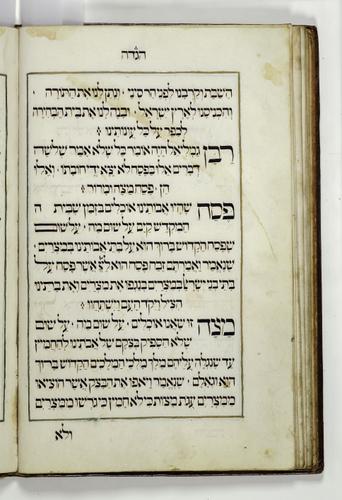 הגדה
השבת וקרבנו לפני הר סיני · ונתן לנו את התורה
והכניסנו לארץ ישראל · ובנה לנו את בית הבחירה
לכפר על כל עונותינו :
רבן גמליאל היה אומר כל שלא אמר שלשה
דברים אלו בפסח לא יצא ידי חובתו · ואלו
הן · פסח מצה ומרור :
פסח שהיו אבותינו אוכלים בזמן שבית ה
המקדש קים על שום מה · על שום
שפסח הקדוש ברוך הוא על בתי אבותינו במצרים ·
שנאמר ואמרתם זבח פסח הוא לה׳ אשר פסח על
בתי בני ישראל במצרים בנגפו את מצרים ואת בתינו
הציל ויקד העם וישתחוו :
מצה זו שאנו אוכלים · על שום מה · על שום
שלא הספיק בצקם של אבתינו להחמיץ
עד שנגלה עליהם מלך מלכי המלכים הקדוש ברוך
הוא וגאלם · שנאמר ויאפו את הבצק אשר הוציאו
ממצרים עגת מצות כי לא חמץ כי גרשו ממצרים
ולא